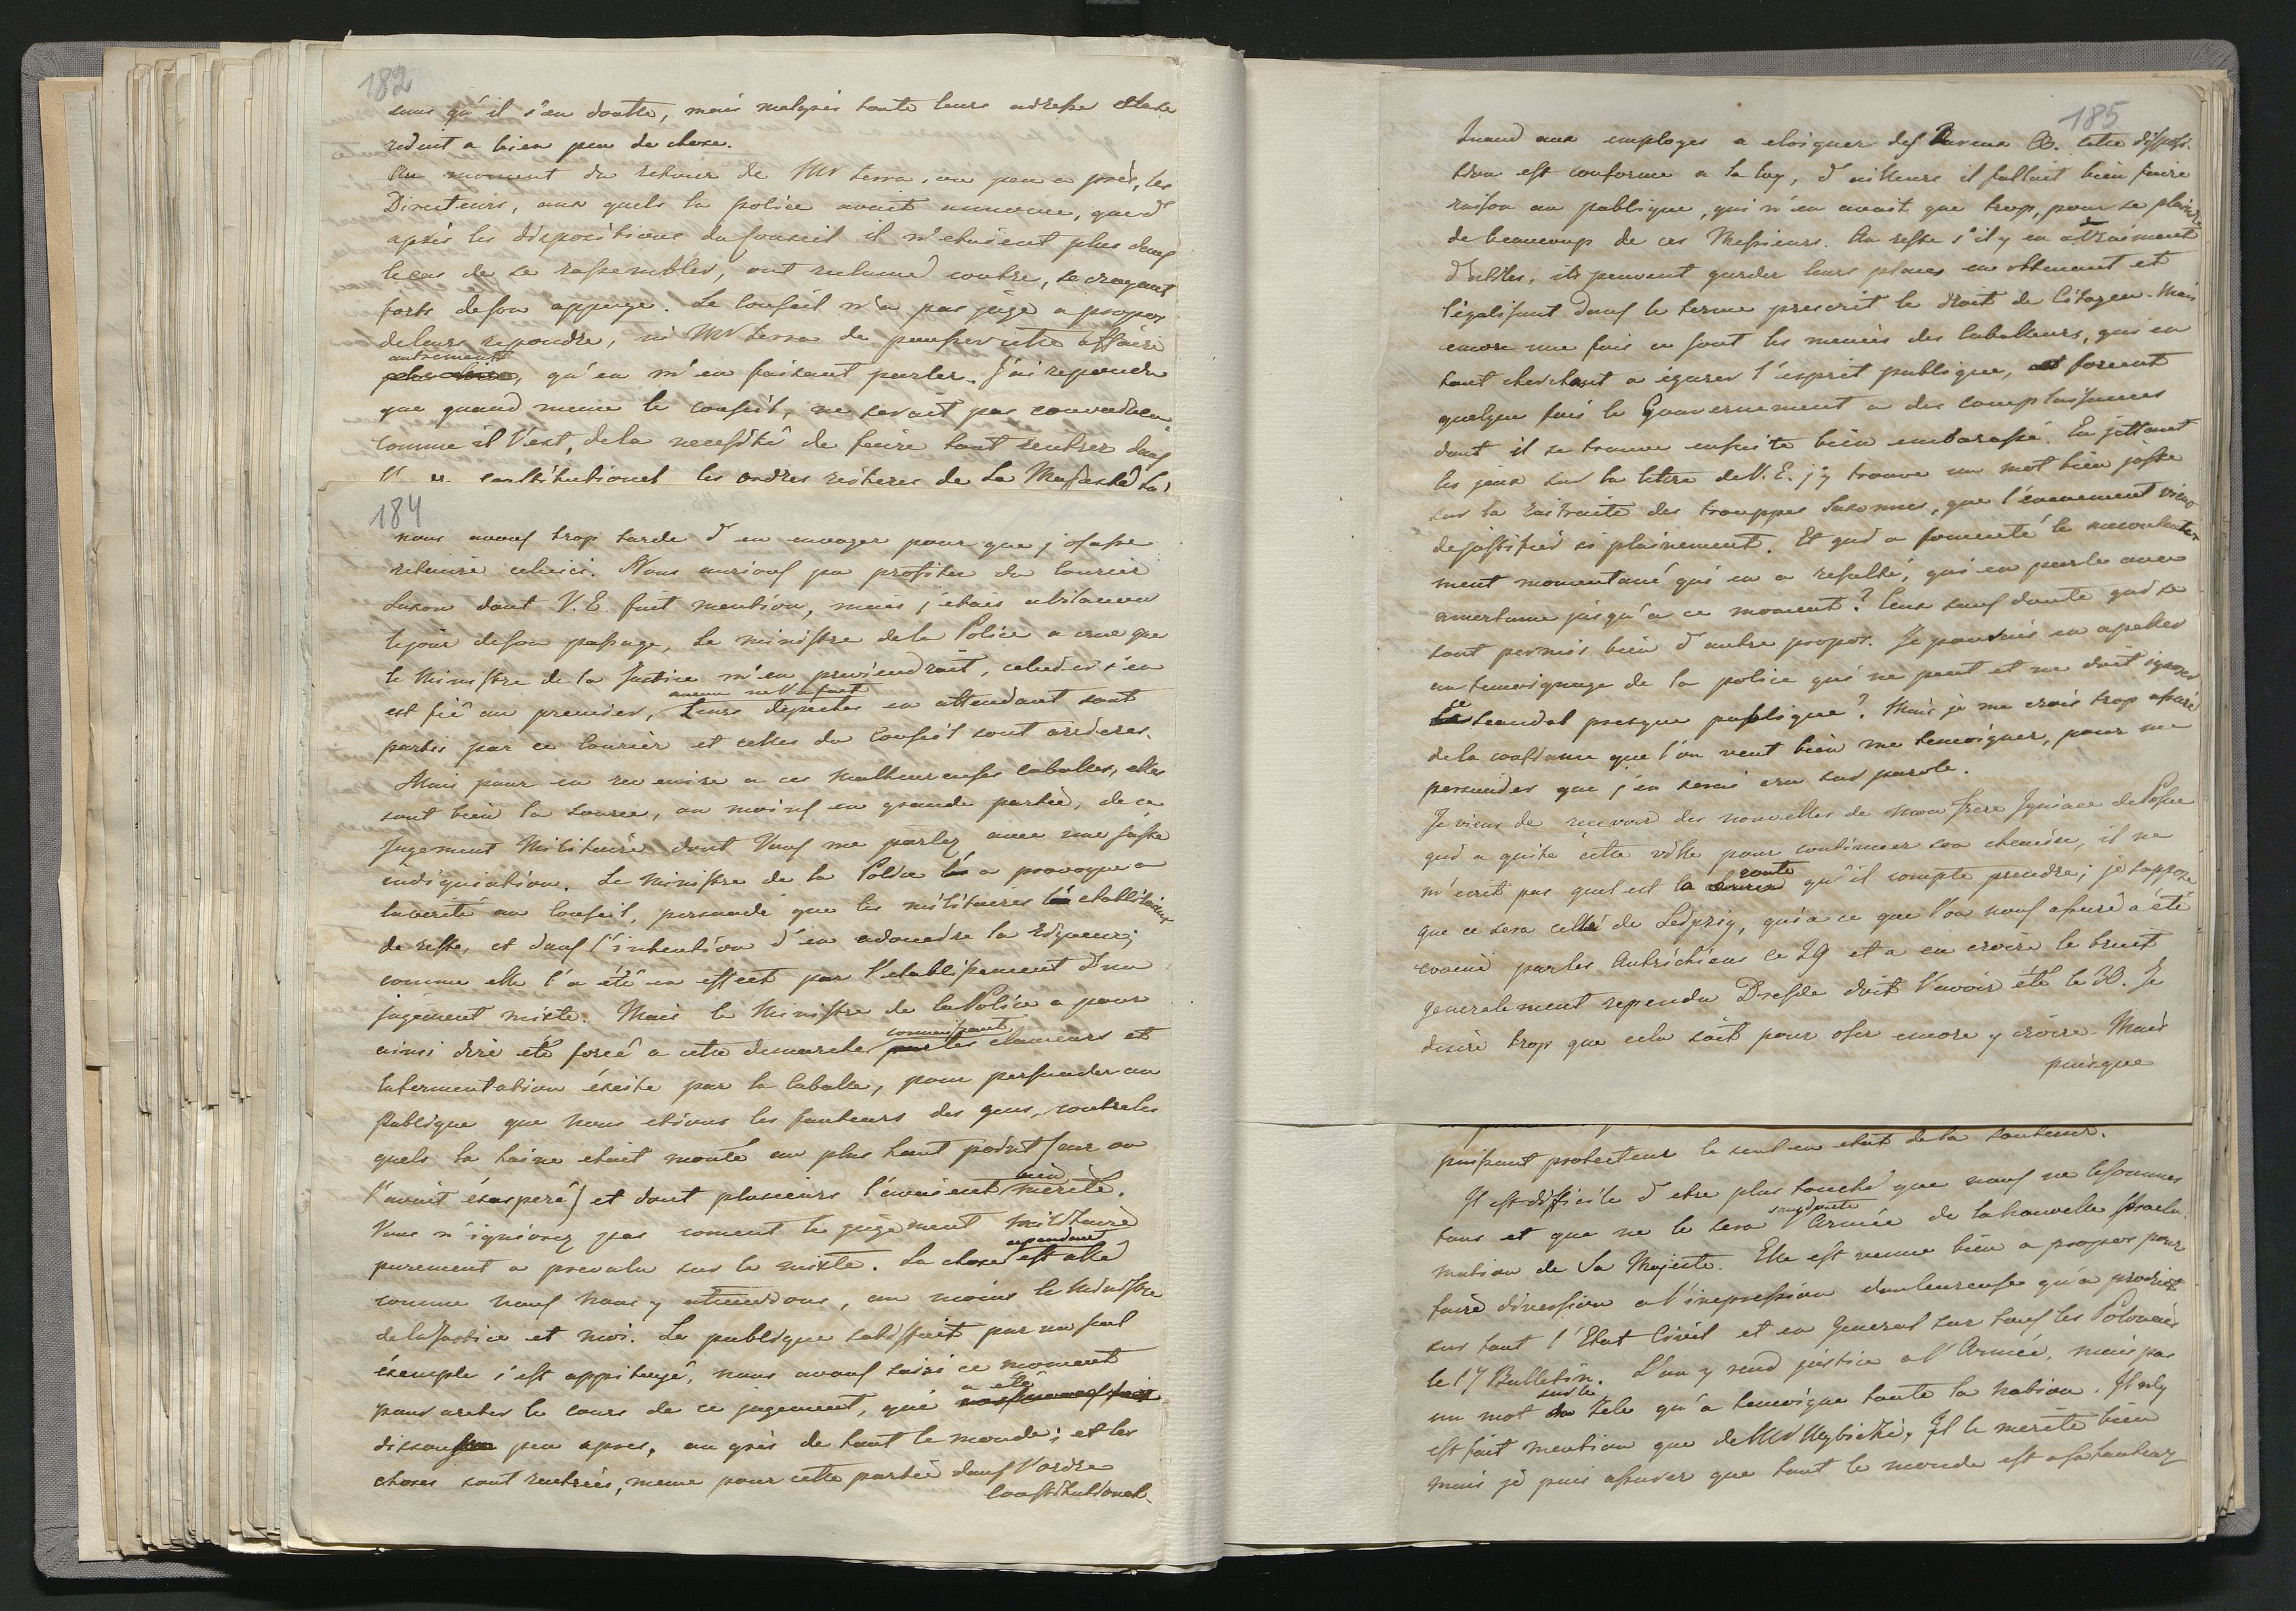 182
sans qu'il s'en doutte, mais malgrès toute leurs adresse cela se
reduit a bien peu de chose.
Au moment du retour de Mr Serra, ou peu a près, les
Directeurs, aux quels la police avait annoncé, que d'
après les dispositions du Conseil il n'etaient plus dans
le cas de se rassembler, ont reclamé contre, se croyant
forts de son appuye. Le Conseil n'a pas jugé a propos
de leurs repondre, ni Mr Serra de penser cette affaire
autrement
, qu'en m'en faisant parler. J'ai repondu
que quand meme le conseil, ne serait pas convaincu
comme il l'est, de la necessité de faire tout rentrer dans
constitutionel les ordres réiteres de Sa Majesté
184
nous avons trop tarde d'en envoyer pour que j'osasse
retenire celuici. Nous aurions pu profiter du Courier
Saxon dont V. E. fait mention, mais j'etais a Wilanow
le jour de son passage, Le ministre de la Police a crue que
le Ministre de la Justice m'en previendrait, celuici s'en
aucun ne l'a fait
est fié au premier, Leurs depeches en attendant sont
partis par ce Courier et celles du Conseil sont arrieres.
Mais pour en revenire a ces malheureuses caballes, elles
sont bien la source, au moins en grande partie, de ce
Jugement Militaire dont Vous me parlez avec une juste
indigniation. Le Ministre de la Police l'a provoque a
la verité au Conseil, persuadé que les militaires l'établiraient
de reste, et dans l'intention d'en adoucire la rigueur;
comme elle l'a été en effect par l'etablissement d'un
jugement mixte. Mais le Ministre de la Police a pour
connaissant
ainsi dire eté forcé a cette demarche les clameurs et
la fermentation éxcite par la Caballe, pour persuader au
Publique que nous etions les fauteurs des gens, contre les
quels la haine etait monté au plus haut point (car on
bien
l'avait éxasperé) et dont plusieurs l'avaient merité.
Vous n'igniorez pas coment le jugement militaire
cependant
purement a prevalu sur le mixte. La chose est allé
comme nous nous y attendions, au moins le Ministre
de la Justice et moi. Le publique satisfait par un seul
éxemple s'est appitoyé, nous avons saisi ce moment
a eté
pour areter le cours de ce jugement, qui
dissous peu apres, au grès de tout le monde; et les
choses sont rentrées, meme pour cette partie dans l'ordre
Constitutionel.
185
Quand aux employes a eloigner des Bureux cette disposi-
tion est conforme a la loy, d'ailleurs il fallait bien faire
raison au publique, qui n'en avait que trop, pour se plaindre
de beaucoup de ces Messieurs. Au reste s'il y en a de vraiment
d'utiles, ils peuvent garder leurs places en obtenant et
legalisant dans le terme prescrit le droit de Citoyen. Mais
encore une fois ce sont les menées des Caballeurs, qui en
tout cherchant a égarer l'esprit publique, forcent
quelque fois le Gouvernement a des complaisances
dont il se trouve ensuite bien embarassé. En jettant
les jeux sur la lettre de V. E. j'y trouve un mot bien juste
sur la retraite des trouppes Saxonnes, que l'evenement vient
de justifier si plainement. Et qui a fomenté le mecontente-
ment momentané qui en a resulté, qui en parle avec
amertume jusqu'a ce moment? Ceux sans doute qui se
sont permis bien d'autre propos. Je pourrais en apeller
au temoignage de la police qui ne peut et ne doit ignorer
ce
scandal presque publique? Mais je me crois trop assuré
de la confiance que l'on veut bien me temoigner, pour me
persuader que j'en serai cru sur parole.
Je viens de recevoir des nouvelles de mon frere Ignace de Posen
qui a quité cette ville pour continuer son chemin, il ne
route
m'ecrit pas quel est la qu'il compte prendre; je suppose
que ce sera celle de Leipzig, qui a ce que l'on nous assure a été
evacué par les Autrichiens le 29 et a en croire le bruit
generalement rependu Dresde doit l'avoir été le 30. Je
desire trop que cela soit pour oser encore y croire. Mais
puisque
puissant protecteur le seul en etat de la soutenir.
Il est difficile d'etre plus touché que nous ne le sommes
sans doute
tous et que ne le sera l'Armée de la nouvelle Procla-
mation de Sa Majesté. Elle est venue bien a propos pour
faire diversion a l'impression douleureuse qu'a produit
sur tout l'Etat Civil et en General sur tous les Polonais
le 17 Bulletin. L'on y rend justice a l'Armée, mais pas
sur le
un mot zele qu'a temoigne toute la Nation. Il n'y
est fait mention que de Mr Wybicki, Il le merite bien
mais je puis assurer que tout le monde est a sa hauteur